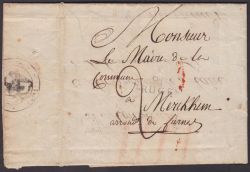 Monsieur
Le Maire de la
Commune
à Merckhem
arrond. de furnes